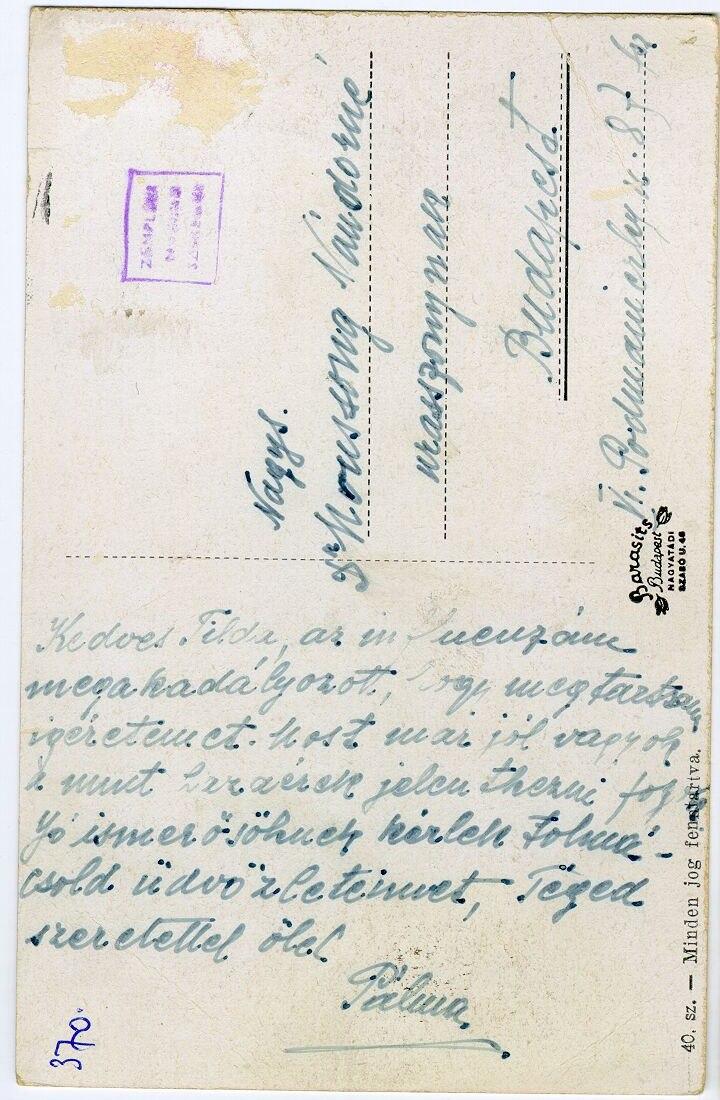 Nagys.
Dr Monszong Nándorné
urasszonynak
Budapest
VI. Podmaniczky u. 87
Barasits
Budapest
NAGYATÁDI
SZABÓ U. 48
Kedves Tilda, az influenzám
megakadályozott, hogy megtartsam
igéretemet. Most már jól vagyok
s mint hazaérek jelentkezni fogok
Jó ismerősöknek kérlek tolmá-
csold üdvözleteimet, Téged
szeretettel ölel
Pálma
40. sz. — Minden jog fenntartva.
ZEMPLÉN
370.